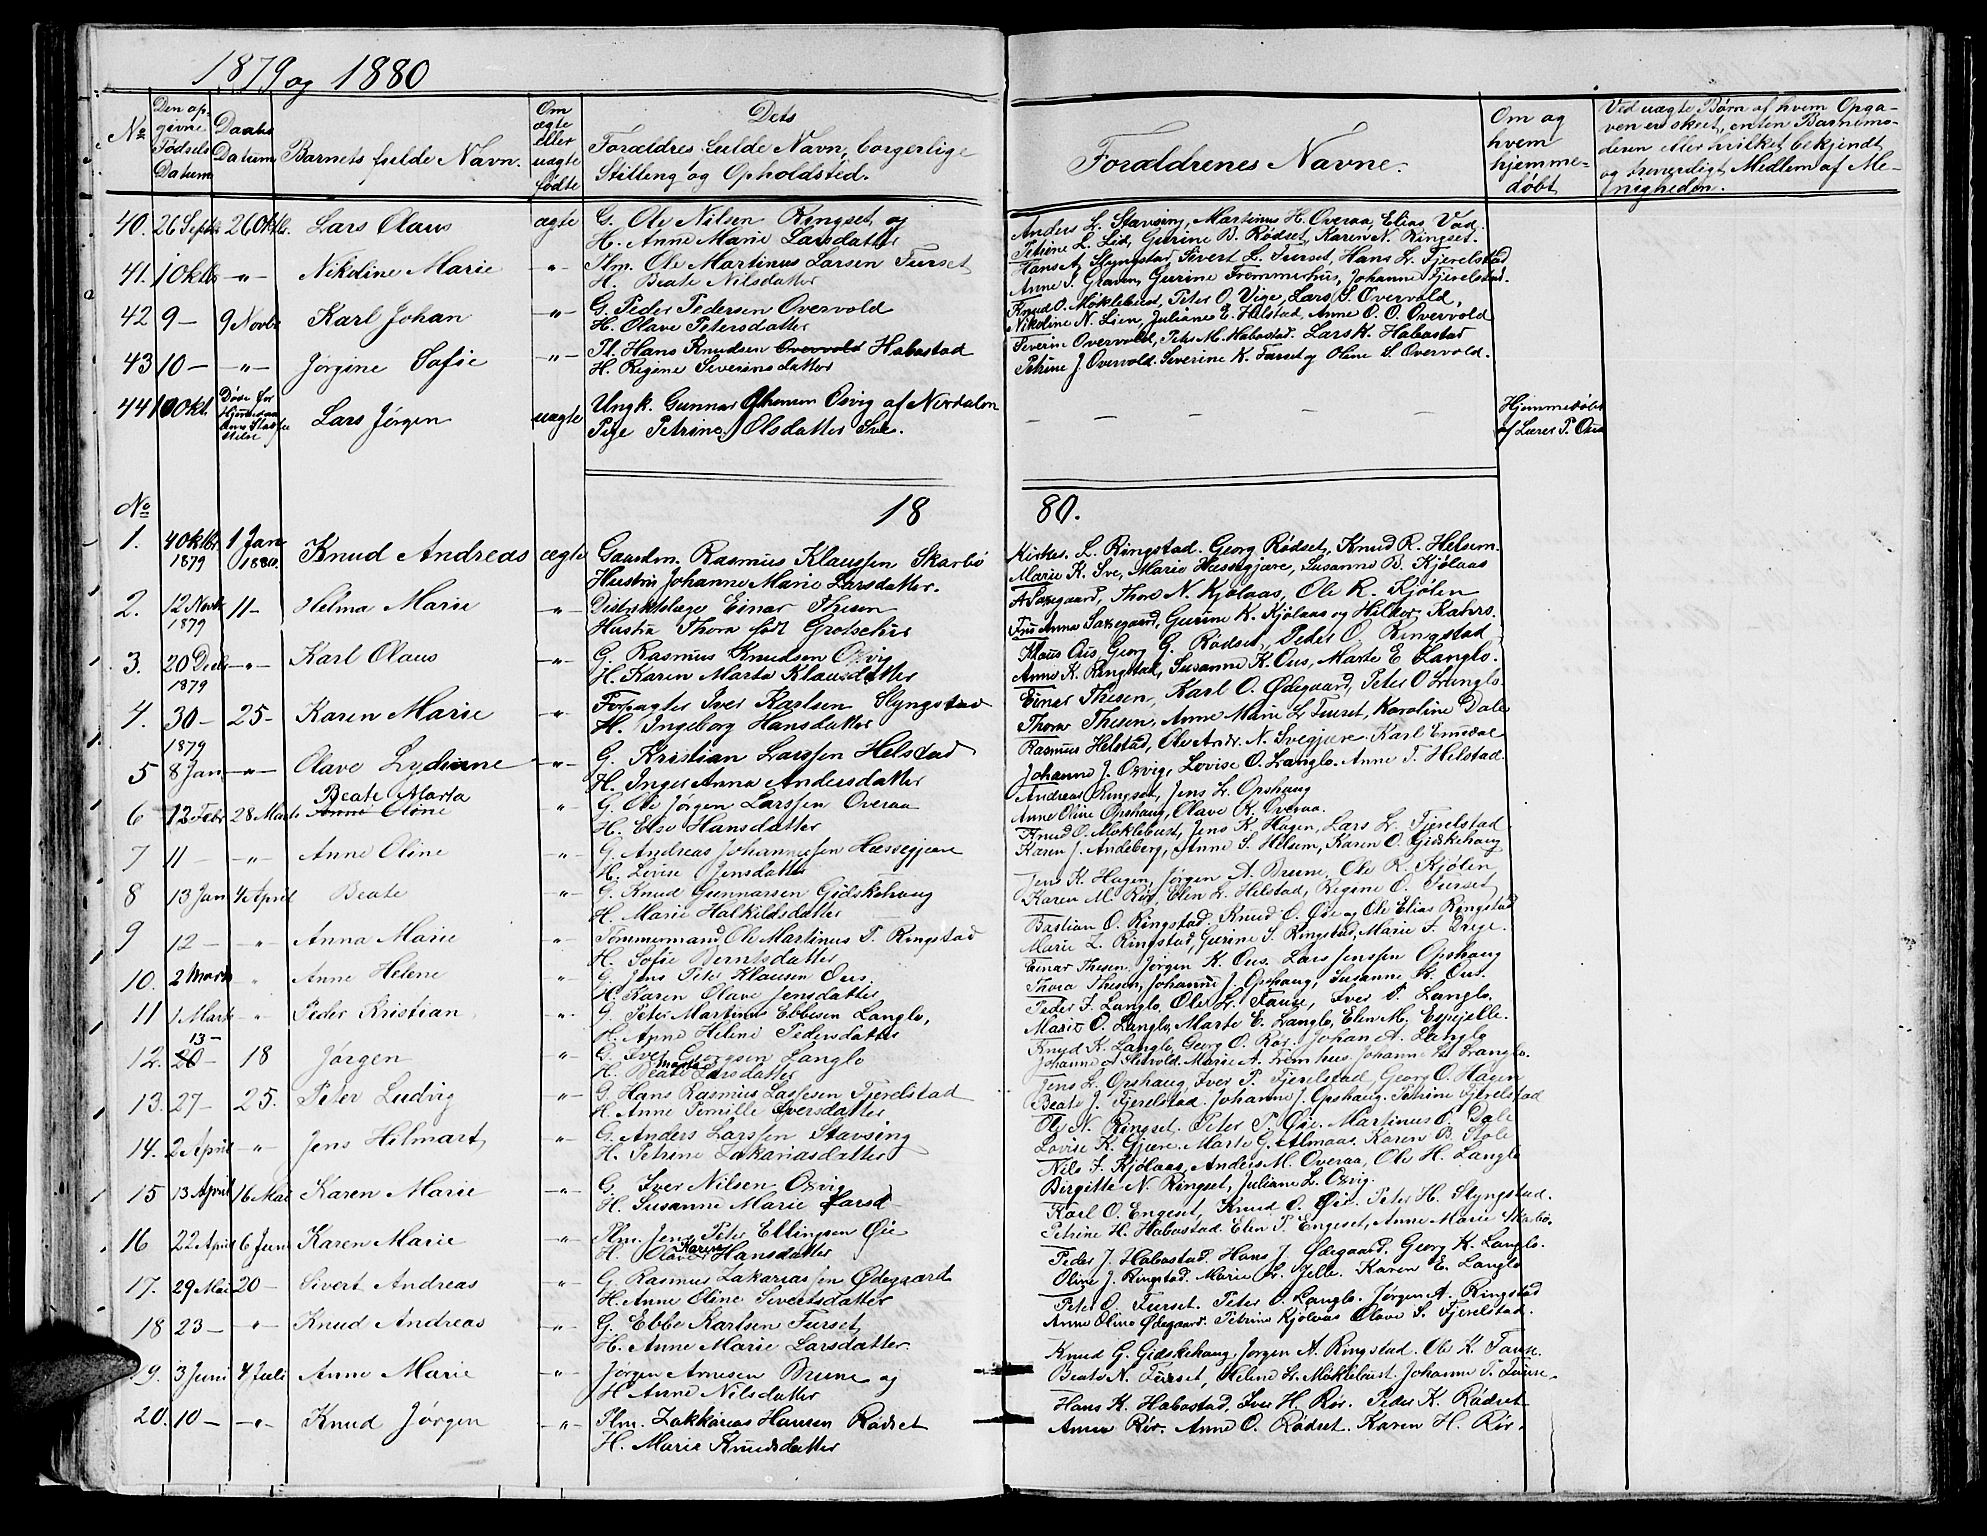 1879 og 1880
No
Den op-
givne
Fødsels
Datum
Daabs
Datum
Barnets fulde Navn.
Om
ægte
eller
uægte
fødte
Dets
Foraldres fulde Navn, borgerlige
Stilling og Opholdsted.
Foraldrenes Navne.
Om og
hvem
hjemme-
døbt
Ved uægte Børn af hvem Opga-
ven er skret, enten Barnemo-
deren eller hvilket bekjendt
og troverdigt Medlem af Me-
nigheden.
40. 26 Septr 26 Oktbr. Lars Olaus ægte G. Ole Nilsen Ringset og
H. Anne Marie Larsdatter
Anders L. Stavseng, Martinus H. Overaa, Elias Vad.
Petrine L. Lid, Gurine B. Rødset, Karen N. Ringset.
41. 1 Oktbr -"- Nikoline Marie -"- Plm. Ole Martinus Larsen Furset
H. Beate Nilsdatter
Hans A. Slyngstad, Sivert L. Furset, Hans L. Fjerelstad
Anne S. Graven, Gurine Fremmerhus, Johanne Fjerelstad.
42 9 - 9 Novbr Karl Johan -"- G. Peder Pedersen Overvold
H. Olave Petersdatter
Knud O. Møklebust, Peter O. Vige, Lars S. Overvold,
Nikoline N. Lien, Juliane E. Helstad, Anne O. O. Overvold
43 10 - -"- Jørgine Sofie -"- Pl. Hans Knudsen Overvold Habostad
H. Regine Severinsdatter
Severine Overvold, Peter M. Habostad. Lars K. Habostad
Petrine J. Overvold. Severine K. Furset og Oline S. Overvold.
44 10 Okt. Døde før
Lars Jørgen uægte Ungk. Gunnar Osvig af Nordalen
Pige Petrine J Olsdatter Sve.
- - - -
Hjemmedøbt
af Lærer P. Ous
No
18 80.
1. 4 Oktbr 1 Jan Knud Andreas ægte Gaardm. Rasmus Klaussen Skarbø
1879 1880. Hustru Johanne Marie Larsdatter.
L. Ringstad. Georg Rødset, Knud R. Helsem.
Marie K. Sve, Marie Hessegjære, Susanne B. Kjølaas
2. 12 Novbr 11 - Helma Marie -"- Distriktslæge Einar Thesen
1879 Hustru Thora født Grotschir
A Saxegaard, Thore N. Kjølaas, Ole R. Kjølen
Frū Anna Saxegaard, Gurine K. Kjølaas og Hilker Kahrs.
3. 20 Decbr -"- Karl Olaus -"- G. Rasmus Knudsen Osvig
1879 H. Karen Marta Klausdatter
Klaus Ous, Georg G. Rødset, Peder O. Ringstad
Anne K. Ringstad, Susanne K. Ous, Marte E. Langlo.
4. 30 - 25 - Karen Marie -"- Forpagter Iver Karlsen Slyngstad
1879 H. Ingeborg Hansdatter
Einar Thesen, Karl O. Ødegaard, Peter O Langlo.
Thora Thesen, Anne Marie L. Furset, Karoline Dale
5 8 Jan -"- Olave Lydianne -"- G. Kristian Larssen Helstad
H. Inger Anna Andersdatter
Rasmus Helstad, Ole Andr. N. Svegjære. Karl Emdal
Johanne J. Osvig, Lovise O. Langlo. Anne T. Helstad.
6 12 Febr 28 Marts Beate Marta
Anne Oline -"- G. Ole Jørgen Larssen Overaa
H. Else Hansdatter
Andreas Ringset, Jens L. Opshaug
Anne Oline Opshaug, Olave K. Overaa.
7 11 - -"- Anne Oline -"- G. Andreas Johannessen Hæssegjære
H. Lovise Jensdatter
Knud O. Møklebust, Jens K. Hagen, Lars L. Fjerelstad
Karen J. Andeberg, Anne S. Helsem, Karen O. Gidskehaug
8 13 Jan 4 April Beate -"- G. Knud Gunnarsen Gidskehaug
H. Marie Halkildsdatter
Jens K. Hagen, Jørgen A. Brune, Ole R. Kjølen
Karen M. Rør, Elen L. Helstad, Regine O. Furset
9 12 - -"- Anna Marie -"- Tømmermand Ole Martinus P. Ringstad
H. Sofie Berntsdatter
Bastian O. Ringstad, Knud O. Øie og Ole Elias Ringstad
Marie L. Ringstad, Gurine S. Ringstad, Marie F. Drege.
10 2 Marts " Anne Helene -"- G. Jens Peter Klausen Ous
H. Karen Olave Jensdatter
Einar Thesen. Jørgen K. Ous. Lars Jenssen Opshaug
Thora Thesen, Johanne J. Opshaug, Susanne K. Ous.
11 1 Marts " Peder Kristian -"- G. Peter Martinus Ebbesen Langlo,
H. Anne Heline Pedersdatter
Peder F. Langlo, Ole L. Fause, Iver P. Langlo.
Marie O. Langlo, Marte E. Langlo, Elen M. Espejelle.
13 -
12. 20 18 Jørgen " G. Iver Georgsen Langlo
H. Beate Marta Larsdatter
Knud K. Langlo, Georg O. Rør, Johan A. Langlo
Johanne A Sletvold. Marie A. Fremhus, Johanne L. Langlo.
13. 27 - 25. Peter Ludvig -"- G. Hans Rasmus Lassesen Fjerelstad
H. Anne Pernille Iversdatter
Jens L. Opshaug, Iver P. Fjerelstad, Georg O. Hagen
Beate J. Fjerelstad. Johanne J. Opshaug. Petrine Fjerelstad
14. 2 April -"- Jens Hilmart -"- G. Anders Larssen Stavsing
H. Petrine Zakariasdatter
Ole N. Ringset. Peter P. Øie. Martinus E. Dale
Lovise K. Gjære. Marte G. Almaas. Karen B. Stole
15 13 April 16 Mai Karen Marie -"- G. Iver Nilsen Osvig
H. Susanne Marie Larsd
Nils F. Kjølaas, Anders M. Overaa, Ole H. Langlo
Birgitte N. Ringset, Juliane L. Osvig.
16 22 April 6 Juni Karen Marie -"- Plm. Jens Peter Ellingsen Øie
H. Olave Karen Hansdatter
Karl O. Engeset, Knud O. Øie. Peter H. Slyngstad.
Petrine H. Habostad. Elen P. Engeset, Anne Marie Skarbø.
17. 29 Mai 20 - Sivert Andreas -"- G. Rasmus Zakariassen Ødegaard
H. Anne Oline Sivertsdatter
Peder J. Habostad. Hans J. Ødegaard, Georg K. Langlo.
Oline J. Ringstad. Marie L. Jelle. Karen E. Langlo
18 23 - -"- Knud Andreas -"- G. Ebbe Karlsen Furset
H. Anne Marie Larsdatter
Peter O. Furset. Peter O. Langlo. Jørgen A. Ringstad
Anne Oline Ødegaard. Petrine Kjølaas Olave S. Fjerelstad.
19. 3 Juni 4 Juli Anne Marie -"- Jørgen Arnesen Brune og
H Anne Nilsdatter
Knud G. Gidskehaug, Jørgen A. Ringstad. Ole K. Fause.
Beate N. Furset, Helene L. Møklebust. Johanne P. Fause.
20. 10 - -"- Knud Jørgen -"- Plm. Zakkarias Hansen Rødset
H. Marie Knudsdatter
Hans K. Habostad, Iver H. Rør. Peder K. Rødset
Anne Rør. Anne O. Rødset. Karen H. Rør.